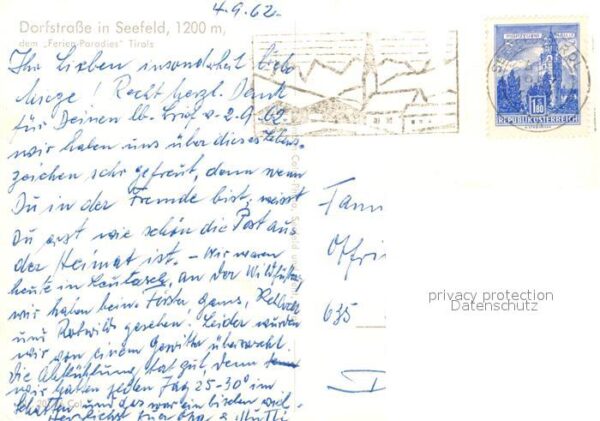 4.9.62.
Dorfstraße in Seefeld, 1200 m,
dem „Ferien-Paradies" Tirols
Ihr Lieben insonderheit liebe
! Recht herzl. Dank
für Deinen lb. Brief v. 2.9.62.
wir haben uns über dieses Lebens-
zeichen sehr gefreut, denn wenn
Du in der Fremde bist, weisst
Du erst wie schön die Post aus
der Heimat ist. – Wir waren
heute in Leutasch, an der Wildfütterg,
wir haben beim Förster Gams, Rehwild
und Rotwild gesehen! Leider wurden
wir von einem Gewitter überrascht.
Die Abkühlung tat gut, denn
wir hatten jeden Tag 25-30° im
Schatten und das war ein bischen viel
Herzlichst Euer Opa & Mutti
REPUBLIK ÖSTERREICH
1.80
635
privacy protection
Datenschutz